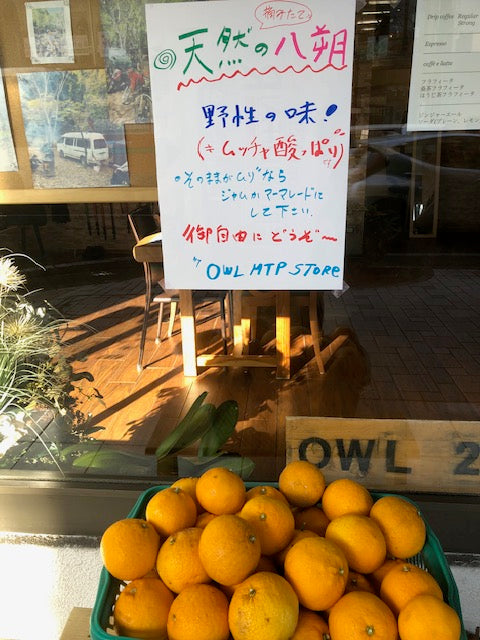 摘みたて♪
天然の八朔
野性の味!
(キムッチャ酸っぱリ)
そのままがムリ゙なら
ジャムかマーマレードに
して下さい.
御自由にどうぞ〜
OWL MTP STORe
Drip coffee Regular
Strong
Espresso
caffé e latte
フラフィーナ
桑茶フラフィーナ
ほうじ茶フラフィーナ
ジンジャーエール
ソーダ(プレーン、レモン
OWL 2